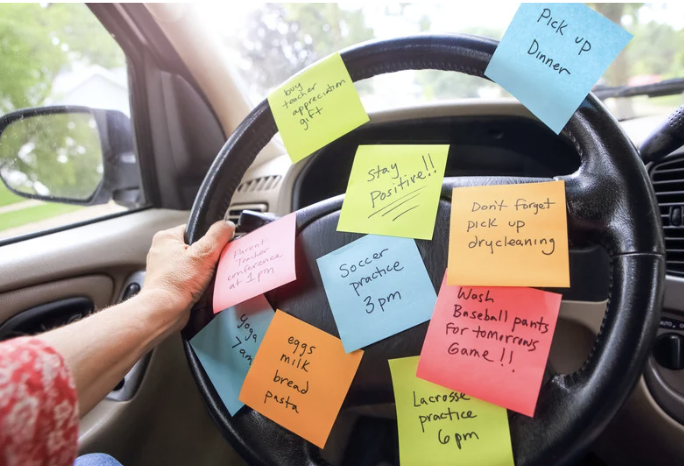 Pick up
Dinner
buy
teacher
appreciation
gift
Stay
Positive!!
Don't forget
pick up
drycleaning
Parent
Teacher
conference
at 1 pm
Soccer
practice
3pm
Wash
Baseball pants
For tomorrows
Game!!
yoga
7am
eggs
milk
bread
pasta
Lacrosse
practice
6pm
AUTO